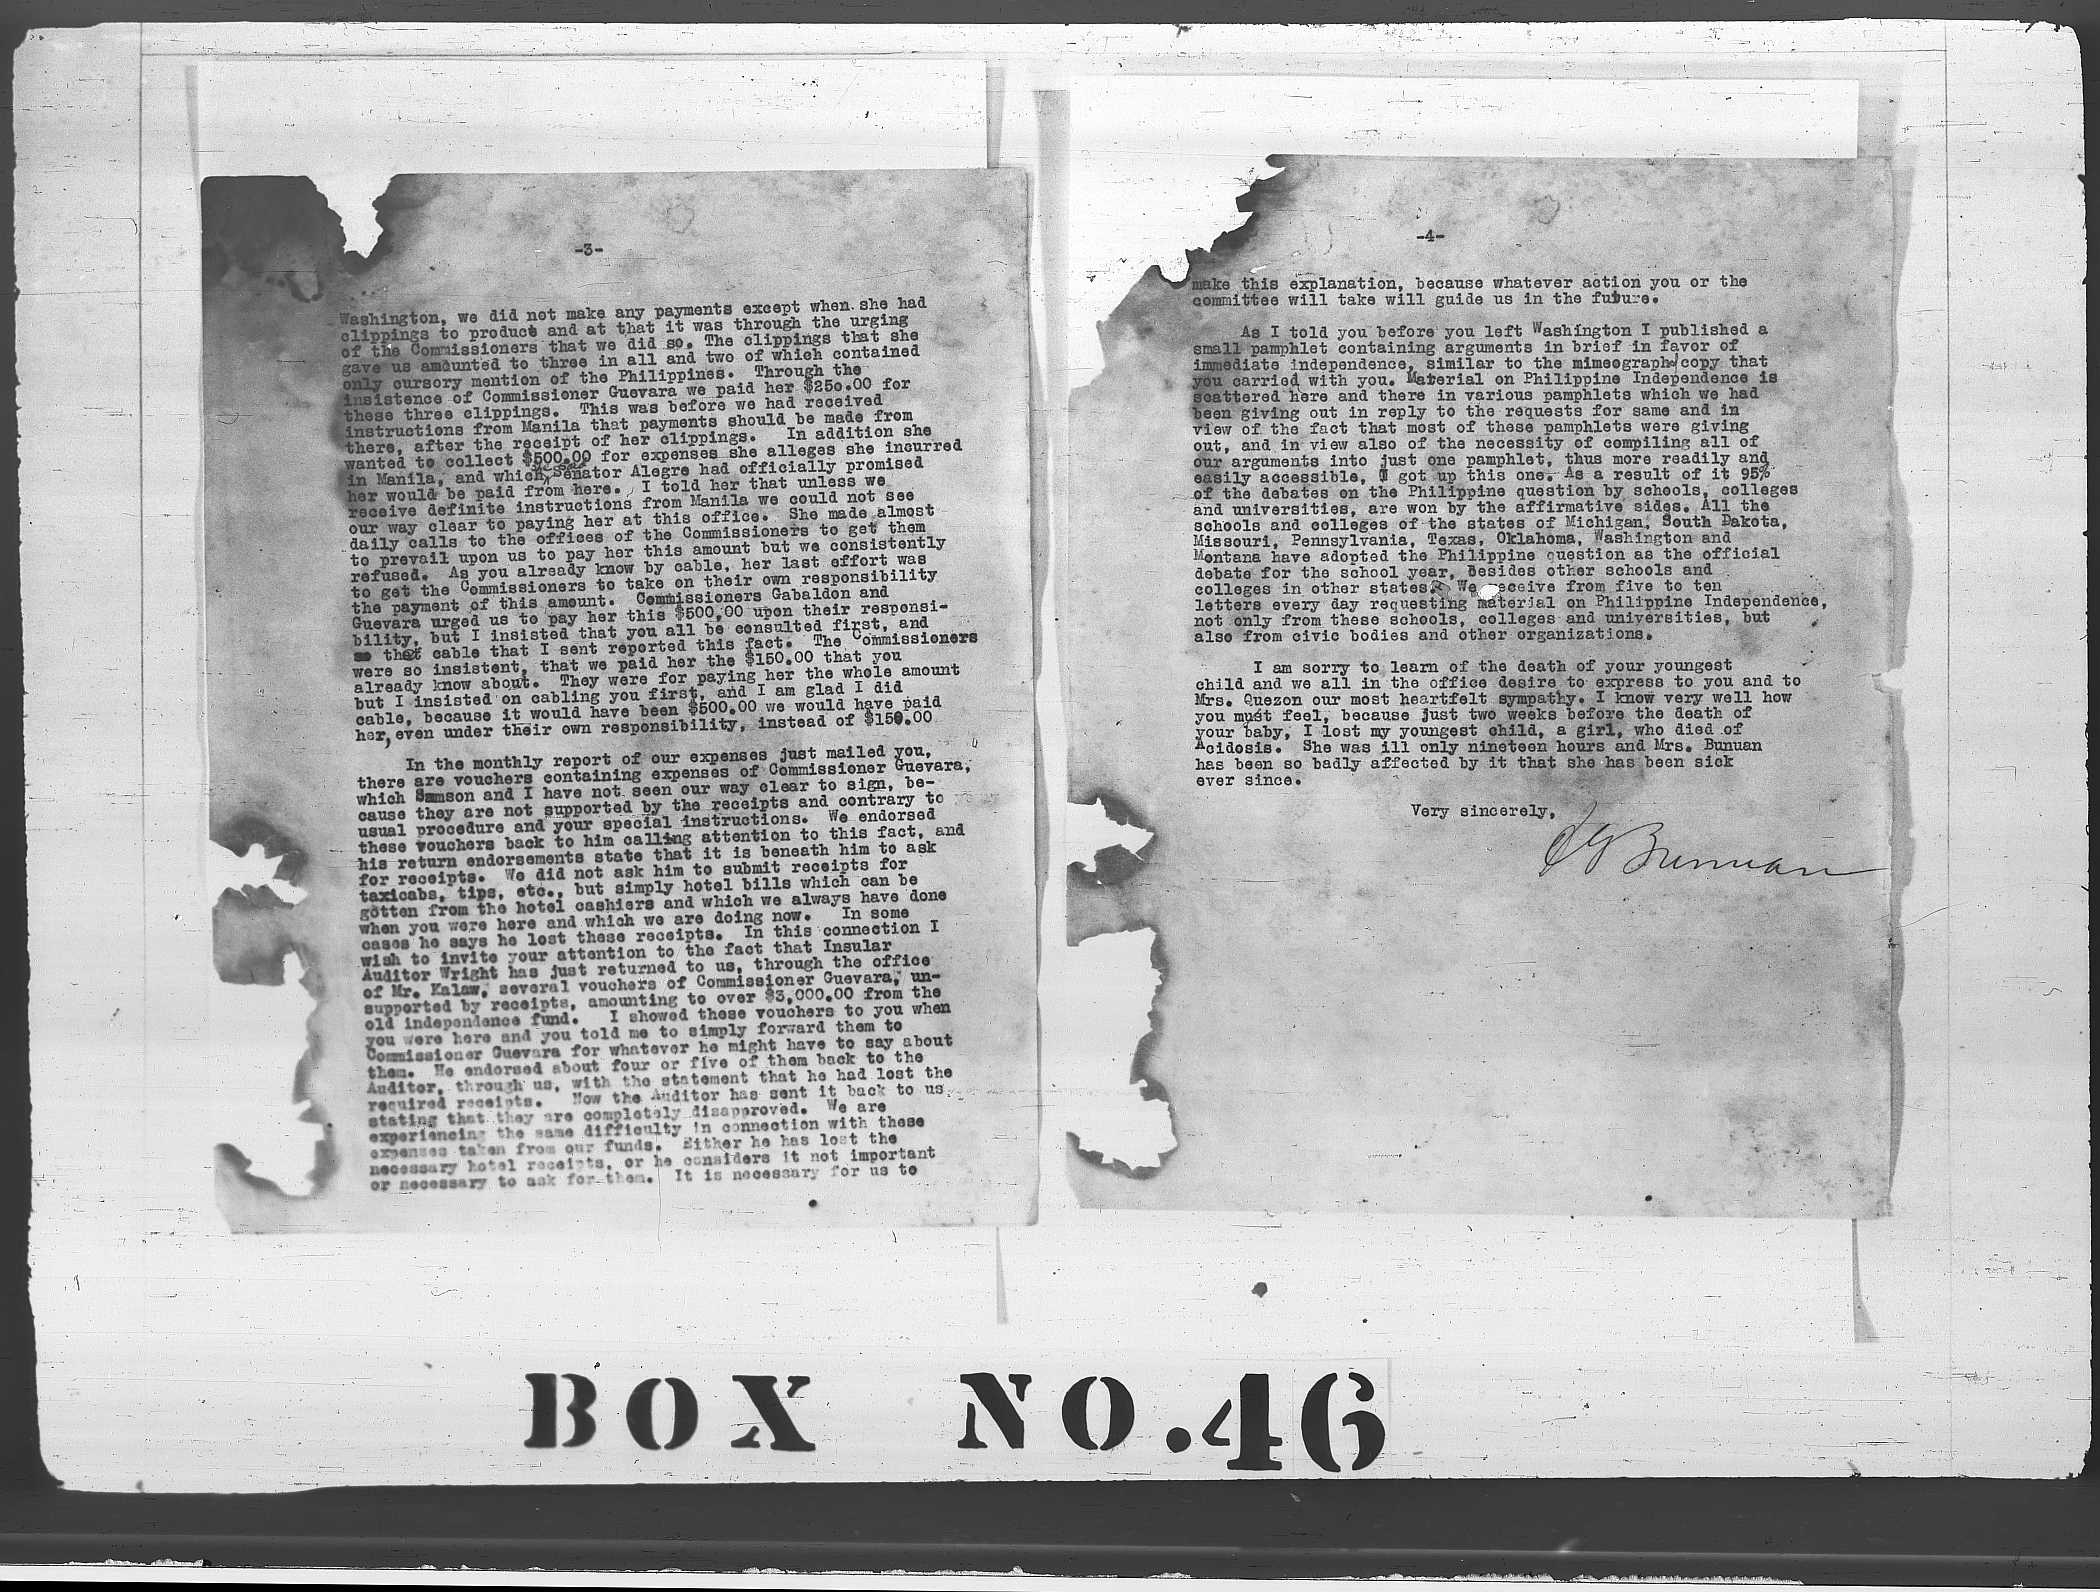 -3-
Washington, we did not make any payments except when she had
clippings to product and at that it was through the urging
of the Commissioners that we did so. The clippings that she
gave us amounted to three in all and two of which contained
only cursory mention of the Philippines. Through the
insistence of Commissioner Guevara we paid her $250.00 for
these three clippings. This was before we had received
instructions from Manila that payments should be made from
there, after the receipt of her clippings. In addition she
wanted to collect $500.00 for expenses she alleges she incurred
in Manila, and which Senator Alegre had officially promised
her would be paid from here. I told her that unless we
receive definite instructions from Manila we could not see
our way clear to paying her at this office. She made almost
daily calls to the offices of the Commissioners to get them
to prevail upon us to pay her this amount but we consistently
refused. As you already know by cable, her last effort was
to get the Commissioners to take on their own responsibility
the payment of this amount. Commissioners Gabaldon and
Guevara urged us to pay her this $500.00 upon their responsi-
bility, but I insisted that you all be consulted first, and
that cable that I sent reported this fact. The Commissioners
were so insistent, that we paid her the $150.00 that you
already know about. They were for paying her the whole amount
but I insisted on cabling you first, and I am glad I did
cable, because it would have been $500.00 we would have paid
her, even under their own responsibility, instead of $150.00
In the monthly report of our expenses just mailed you,
there are vouchers containing expenses of Commissioner Guevara,
which Samson and I have not seen our way clear to sign, be-
cause they are not supported by the receipts and contrary to
usual procedure and your special instructions. We endorsed
these vouchers back to him calling attention to this fact, and
his return endorsements state that it is beneath him to ask
for receipts. We did not ask him to submit receipts for
taxicabs, tips, etc., but simply hotel bills which can be
gotten from the hotel cashiers and which we always have done
when you were here and which we are doing now. In some
cases he says he lost these receipts. In this connection I
wish to invite your attention to the fact that Insular
Auditor Wright has just returned to us, through the office
of Mr. Kalaw, several vouchers of Commissioner Guevara, un-
supported by receipts, amounting to over $3,000.00 from the
old independence fund. I showed these vouchers to you when
you were here and you told me to simply forward them to
Commissioner Guevara for whatever he might have to say about
them. He endorsed about four or five of them back to the
Auditor, through us, with the statement that he had lost the
required receipts. Now the Auditor has sent it back to us
stating that they are completely disapproved. We are
experiencing the same difficulty in connection with these
expenses taken from our funds. Either he has lost the
necessary hotel receipts, or he considers it not important
or necessary to ask for them. It is necessary for us to
-4-
make this explanation, because whatever action you or the
committee will take will guide us in the future.
As I told you before you left Washington I published a
small pamphlet containing arguments in brief in favor of
immediate independence, similar to the mimeograph copy that
you carried with you. Material on Philippine Independence is
scattered here and there in various pamphlets which we had
been giving out in reply to the requests for same and in
view of the fact that most of these pamphlets were giving
out, and in view also of the necessity of compiling all of
our arguments into just one pamphlet, thus more readily and
easily accessible, I got up this one. As a result of it 95%
of the debates on the Philippine question by schools, colleges
and universities, are won by the affirmative sides. All the
schools and colleges of the states of Michigan, South Dakota,
Missouri, Pennsylvania, Texas, Oklahoma, Washington and
Montana have adopted the Philippine question as the official
debate for the school year, besides other schools and
colleges in other states. We receive from five to ten
letters every day requesting material on Philippine Independence,
not only from these schools, colleges and universities, but
also from civic bodies and other organizations.
I am sorry to learn of the death of your youngest
child and we all in the office desire to express to you and to
Mrs. Quezon our most heartfelt sympathy. I know very well how
you must feel, because just two weeks before the death of
your baby, I lost my youngest child, a girl, who died of
Acidosis. She was ill only nineteen hours and Mrs. Bunuan
has been so badly affected by it that she has been sick
ever since.
Very sincerely,
Bunuan
BOX NO.46